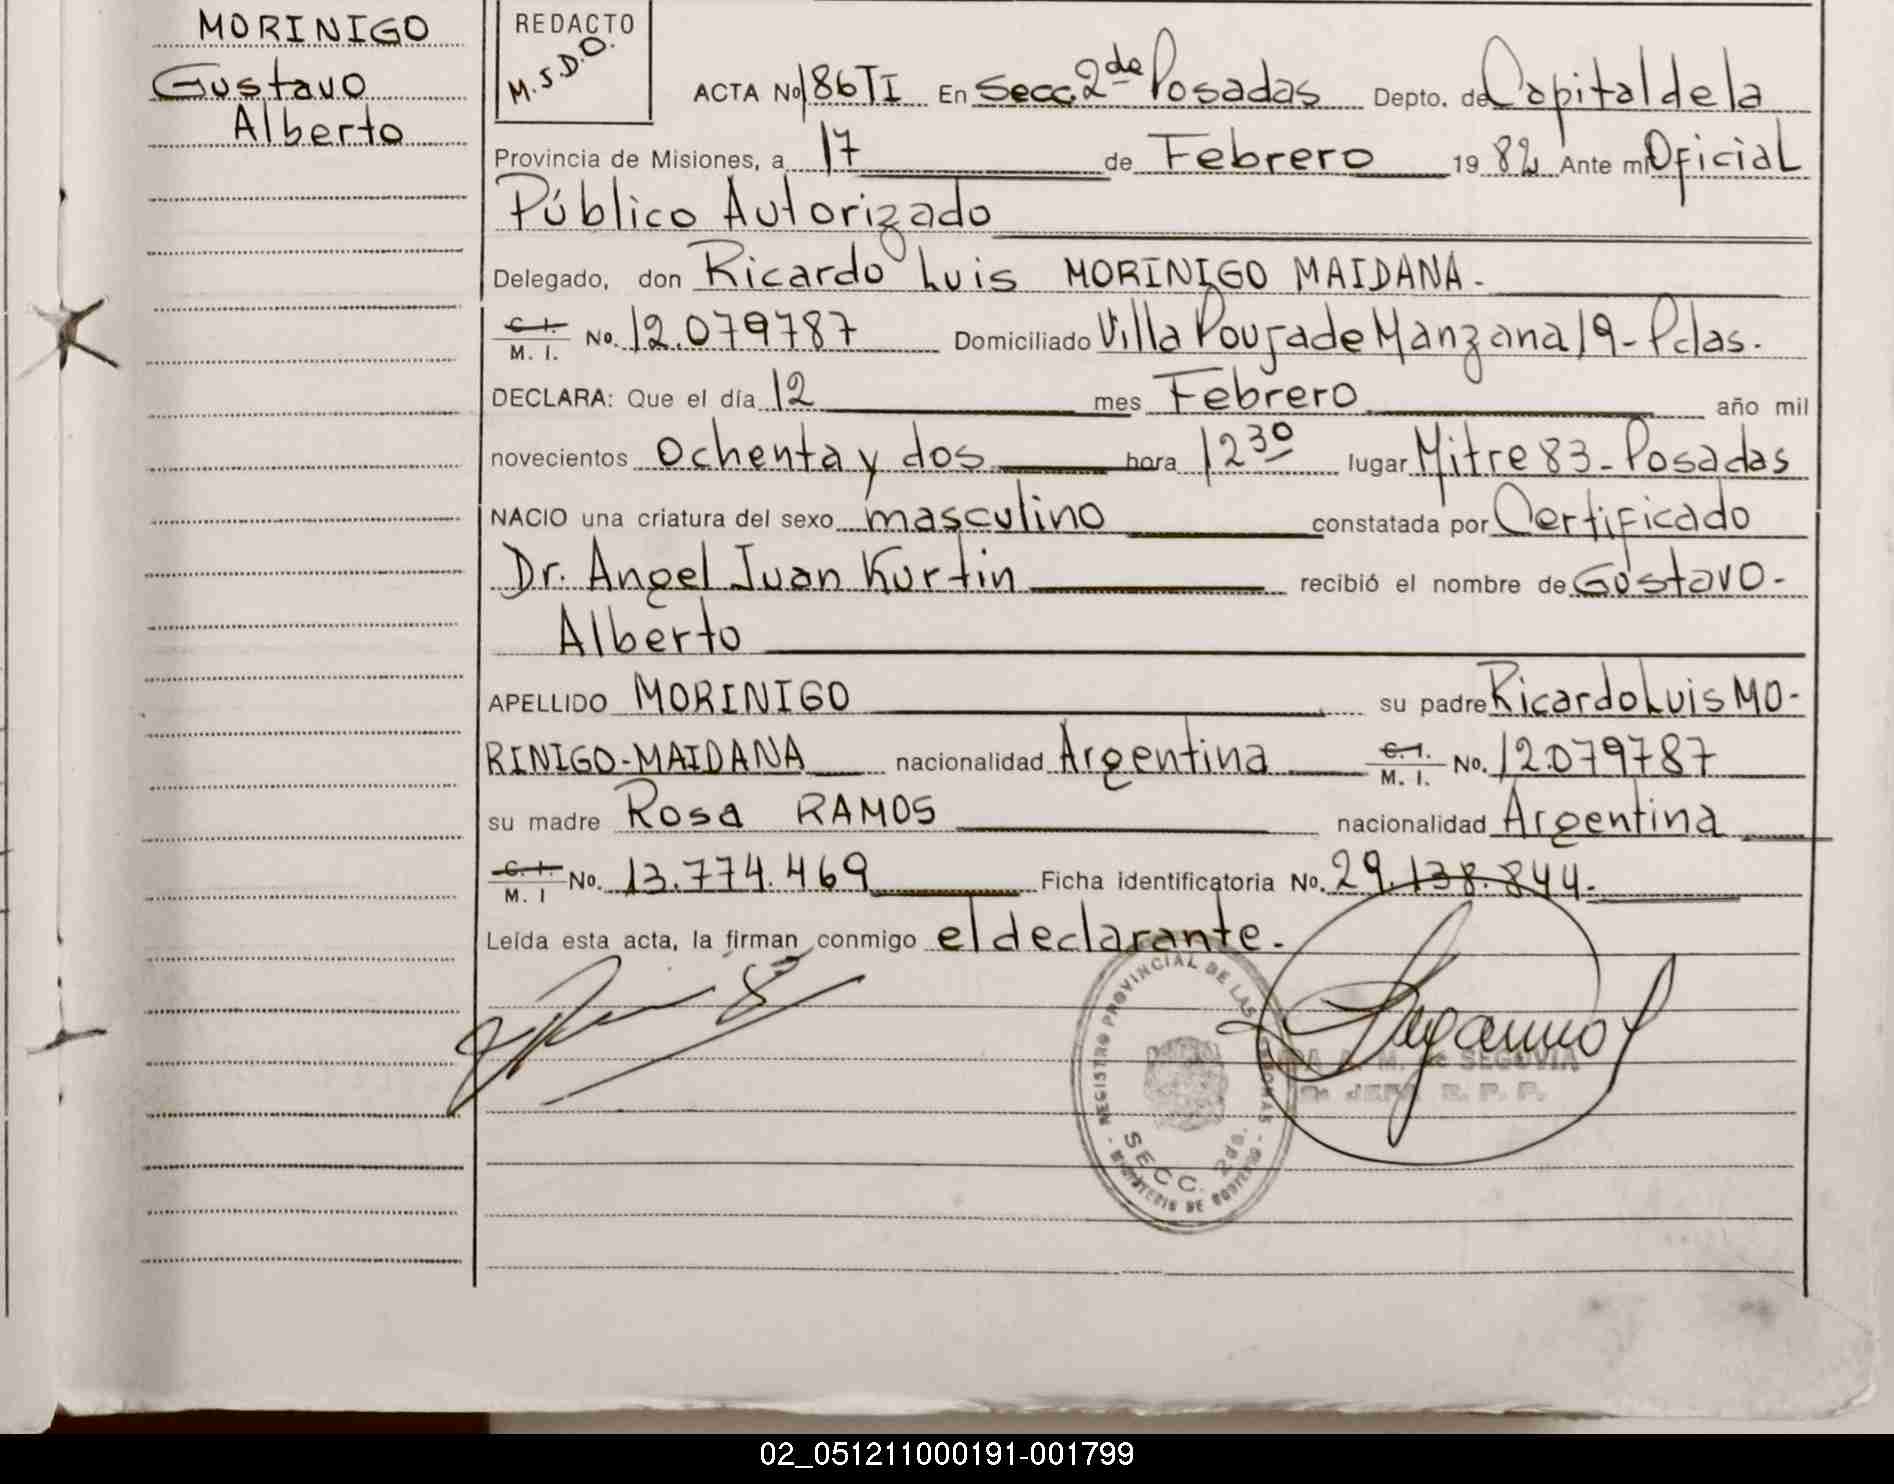 MORINIGO
Gustavo
Alberto
REDACTO
M.S.D.O.
ACTA No 186 TI En Secc. 2da Posadas Depto. de Capital de la
Provincia de Misiones, a 17 de Febrero 1982 Ante mi Oficial
Público Autorizado
Delegado, don Ricardo Luis MORINIGO MAIDANA.
C. I. M. I. No. 12.079787 Domiciliado Villa Poujade Manzana 19- Pdas.
DECLARA: Que el día 12 mes Febrero año mil
novecientos ochenta y dos hora 12 30 lugar Mitre 83- Posadas
NACIO una criatura del sexo masculino constatada por Certificado
Dr. Angel Juan Kurtin recibió el nombre de Gustavo-
Alberto
APELLIDO MORINIGO su padre Ricardo Luis MO-
RINIGO-MAIDANA nacionalidad Argentina C. I. M. I. No. 12.079787
su madre Rosa RAMOS nacionalidad Argentina
C. I. M. I No. 13.774.469 Ficha identificatoria No. 29.138.844.
Leída esta acta, la firman conmigo el declarante.
REGISTRO PROVINCIAL DE LAS PERSONAS
SECC. 2da.
MINISTERIO DE GOBIERNO
M. de SEGOVIA
JEFE R. P. P.
02_051211000191-001799